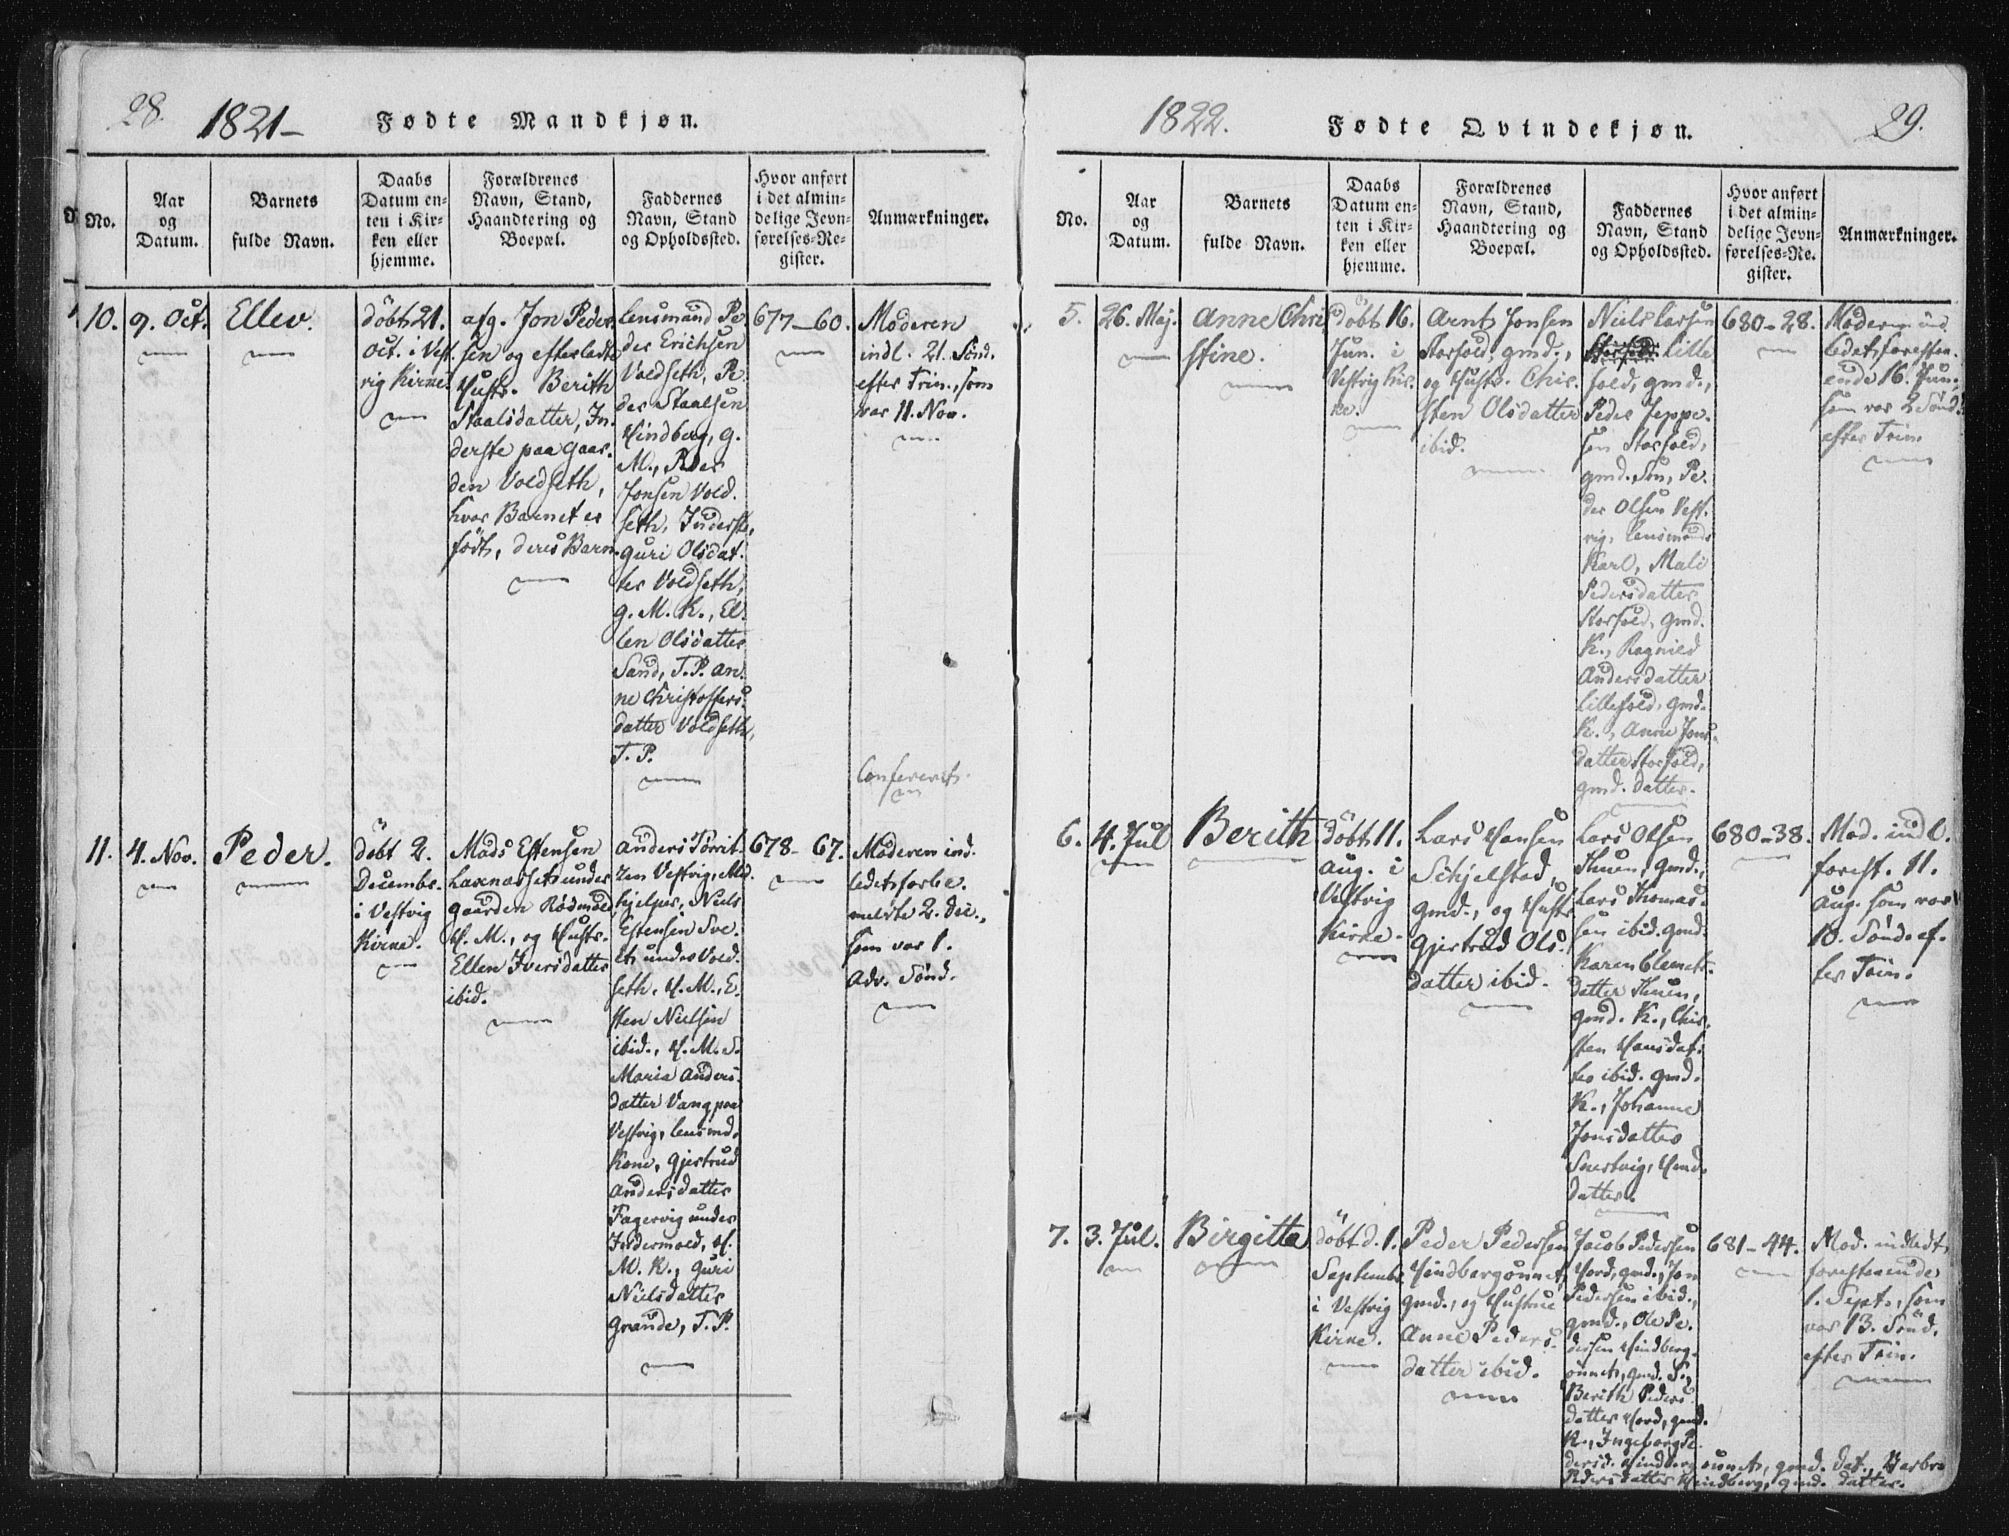 28.
1821-
Fødte Mandkjøn.
No.
Aar
og
Datum.
Barnets
fulde Navn.
Daabs
Datum en-
ten i Kir-
ken eller
hjemme.
Forældrenes
Navn, Stand,
Haandtering og
Boepæl.
Faddernes
Navn, Stand
og Opholdssted.
Hvor anført
i det almin-
delige Jevn-
førelses-Re-
gister.
Anmærkninger.
10.
9. Oct.
Ellev.
döbt 21.
Oct. i Vest
vig Kirke
afg. Jon Peder
sen og efterladte
Hustr. Berith
Staalsdatter, In
derste paa Gaar
den Voldseth,
hvor Barnet er
födt, deres Barn.
Lensmand Pe
der Erichsen
Voldseth, Pe
der Staalsen
Hindberg, g.
M., Peder
Jonsen Vold
seth, Inderste,
Guri Olsdat
ter Voldseth,
g. M. K., El
len Olsdatter
Sand, T.P. An
ne Christophers
datter Voldseth,
T. P.
677-60.
Moderen
indl. 21. Sönd.
efter Trin., som
var 11. Nov.
Confererit.
11.
4. Nov.
Peder.
döbt 2.
Decembr.
i Vestvig
Kirke.
Mads Estensen
Laxenæsset under
Gaarden Rödmöld
H. M., og Hustr.
Ellen Iversdatter
ibid.
Anders Törrit
zen Vestvig, Med
hjelper, Niels
Estensen Sve
et under Vold
seth, H. M., E
sten Nielsen
ibid., H. M. S.
Maria Anders
datter Vang paa
Vestvig, Lensmd.
Kone, Gjertrud
Andersdatter
Fagervig under
Indermold, H.
M. K., Guri
Nielsdatter
Grande, T. P.
678-67.
Moderen ind
ledet forbe
meldte 2. Dec.,
som var 1.
Adv. Sönd.
1822.
Fødte Qvindekjøn.
29.
No.
Aar
og
Datum.
Barnets
fulde Navn.
Daabs
Datum en-
ten i Kir-
ken eller
hjemme.
Forældrenes
Navn, Stand,
Haandtering og
Boepæl.
Faddernes
Navn, Stand
og Opholdssted.
Hvor anført
i det almin-
delige Jevn-
førelses-Re-
gister.
Anmærkninger.
5.
26. Maj.
Anne Chri
stine.
döbt 16.
Jun. i
Vestvig Kir
ke.
Arnt Jonsen
Storfold, gmd.,
og Hustr. Chir
sten Olsdatter
ibid.
Niels Larsen
Storfold Lille
fold, gmd.,
Peder Jeppe
sen Storfold,
gmd. Sön, Pe
der Olsen Vest
vig, Lensmands
Karl, Mali
Pedersdatter
Storfold, gmd.
K., Ragnild
Andersdatter
Lillefold, gmd.
K., Anne Jons
datter Storfold,
gmd. Datter.
680-28.
Moderen ind
ledet foresta
ende 16. Jun.
som var 2 Sönd.
efter Trin.
6.
4. Jul
Berith
döbt 11.
Aug. i
Vestvig
Kirke.
Lars Hansen
Schjelstad,
gmd., og Hustr
Gjertrud Ols
datter ibid.
Lars Olsen
Thuen, gmd.,
Lars Thomas
sen ibid. gmd.
Karen Clemets
datter Thuen,
gmd. K., Chir
sten Hansdat
ter ibid. gmd.
K., Johanne
Jonsdatter
Snertvig, Hmd.
datter.
680-38.
Mod. indl.
forest. 11.
Aug. som var
10. Sönd. ef
ter Trin.
7.
3. Jul.
Birgitta
döbt d. 1.
Septembr.
i Vestvig
Kirke.
Peder Pedersen
Hindbergönnet,
gmd., og Hustrue
Anne Peders
datter ibid.
Jacob Pedersen
Hord, gmd., Jon
Pedersen ibid.,
gmd., Ole Pe
dersen Hindberg
önnet, gmd. S.,
Berith Peders
datter Hord, gmd.
K., Ingeborg Pe
dersd. Hindbergönnet, gmd. dat., Barbro
Pedersdatter Hindberg, gmd. datter.
681-44.
Mod. indledt
forestaaende
1. Sept., som
var 13. Sönd.
efter Trin.